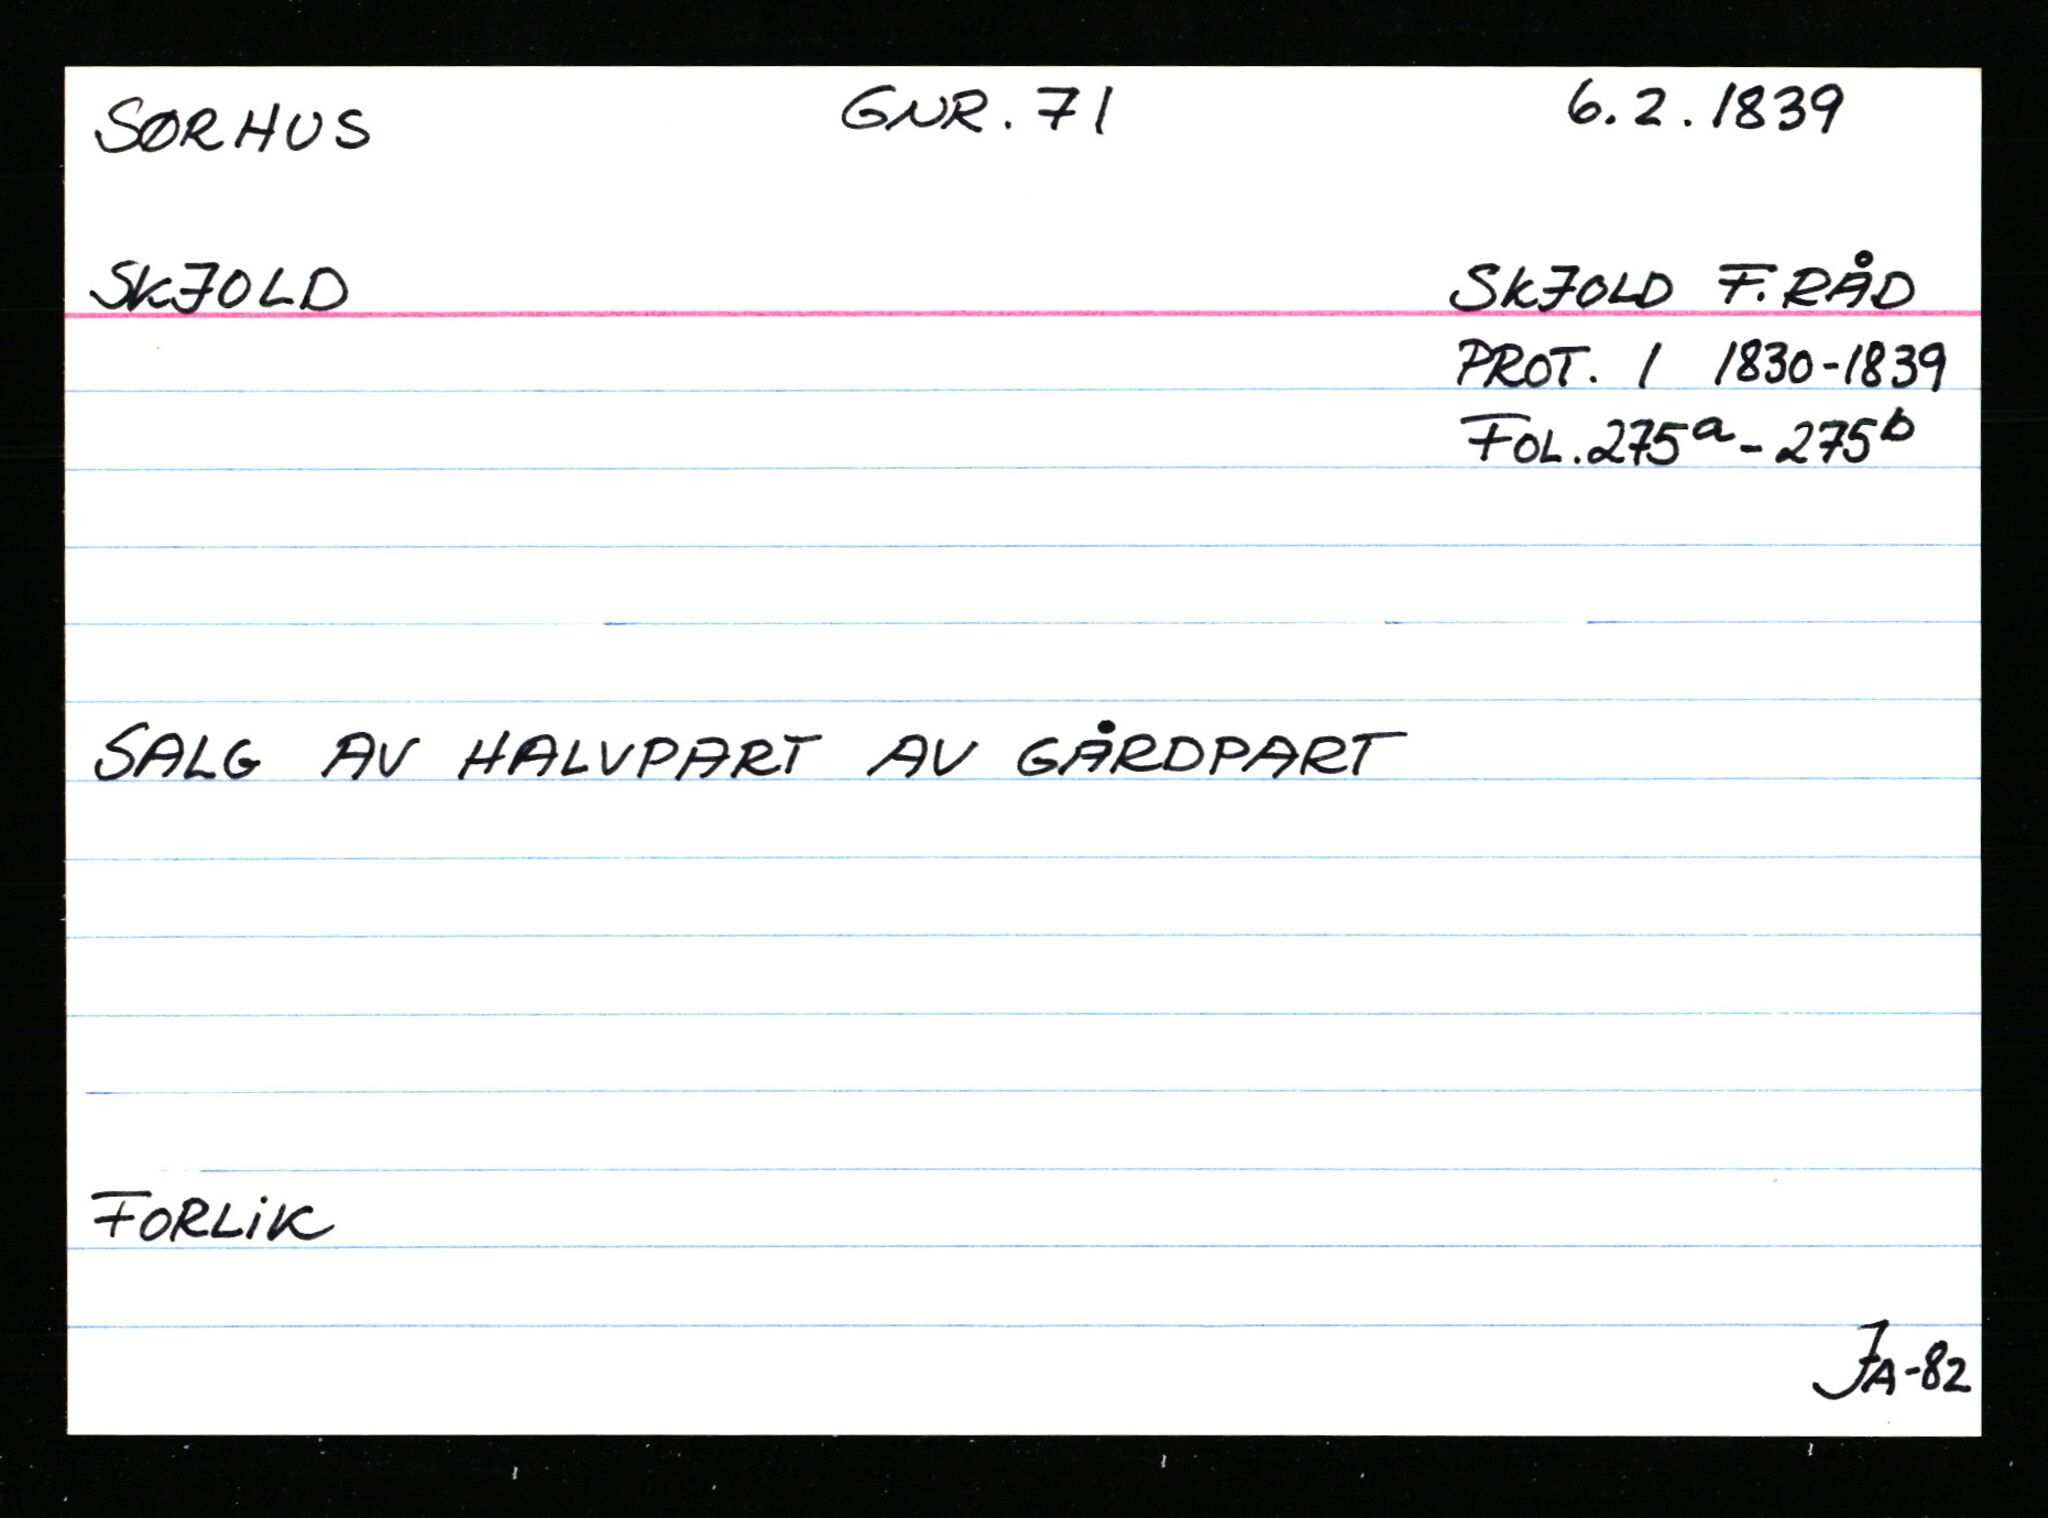 SØRHUS GNR. 71 6.2.1839
SKJOLD SKJOLD F.RÅD
PROT. 1 1830-1839
FOL. 275a - 275b
SALG AV HALVPART AV GÅRDPART
FORLiK
JA-82